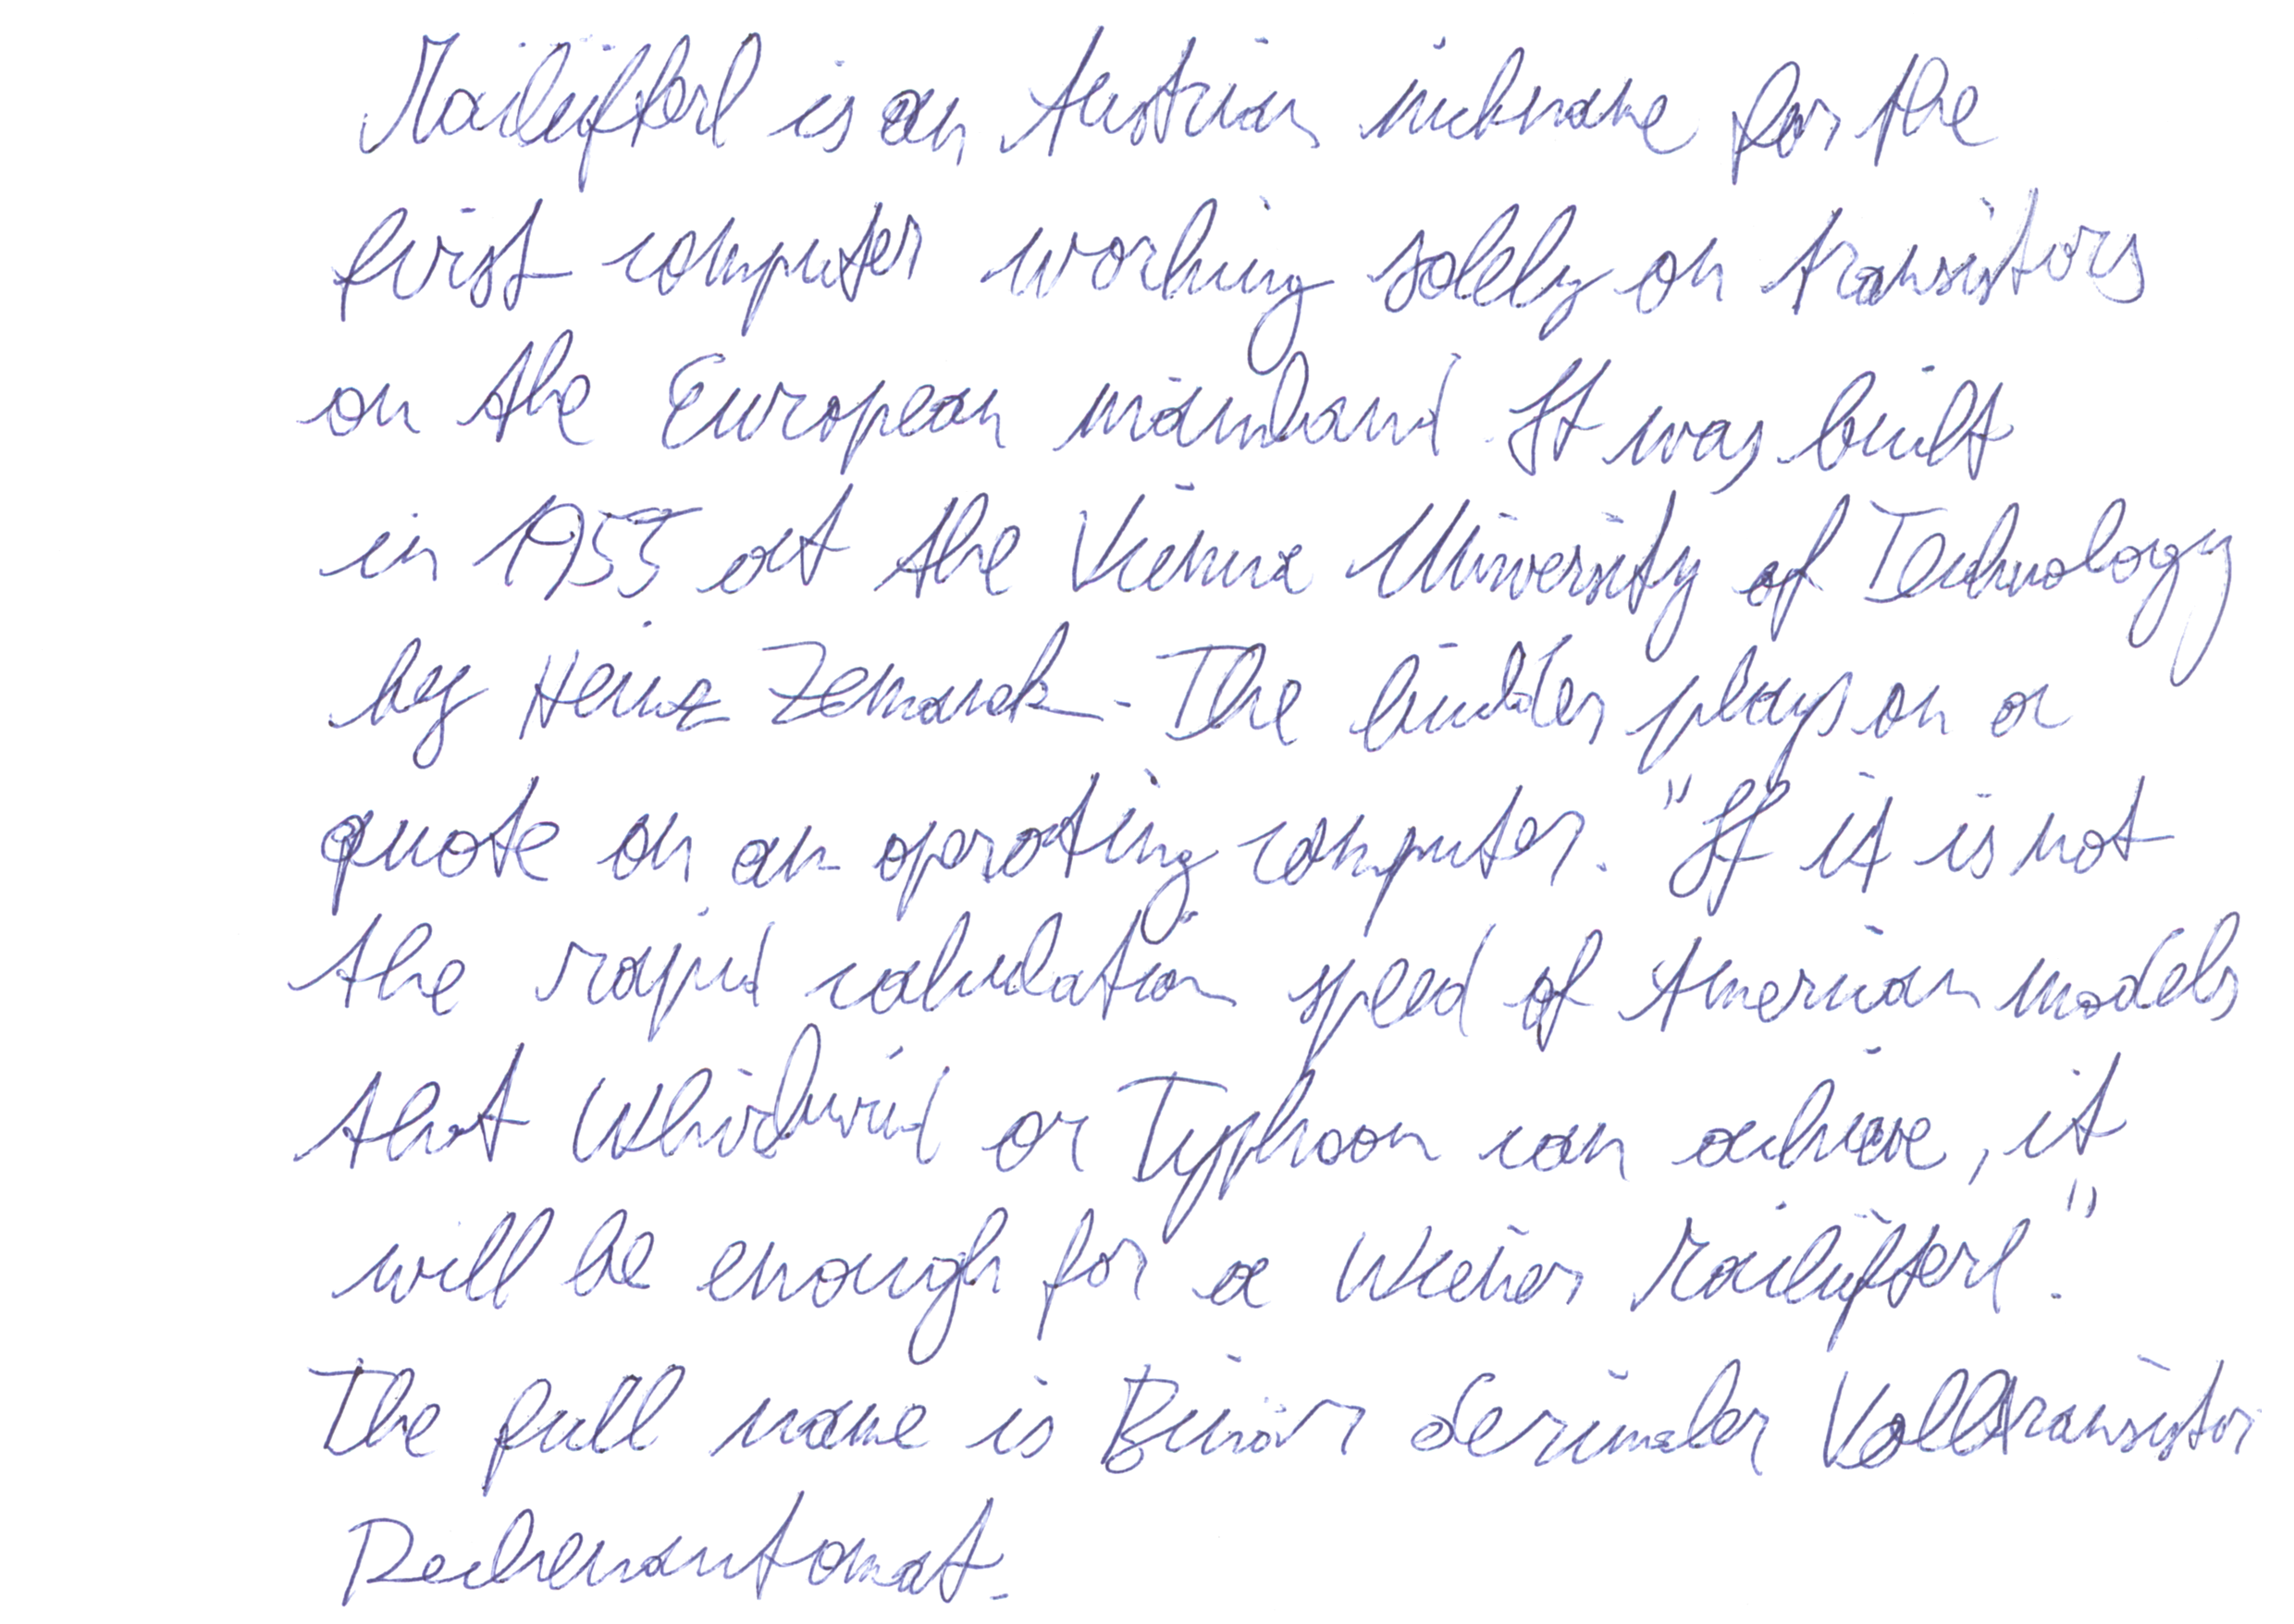 Mailüfterl is an Austrian nickname for the
first computer working solely on transistors
on the European mainland. It was built
in 1955 at the Vienna University of Technology
by Heinz Zemanek. The builder plays on a
quote on an operating computer. "If it is not
the rapid calculation speed of American models
that Whirlwind or Typhoon can achieve, it
will be enough for a Wiener Mailüfterl."
The full name is Binär dezimaler Volltransistor
Rechenautomat.